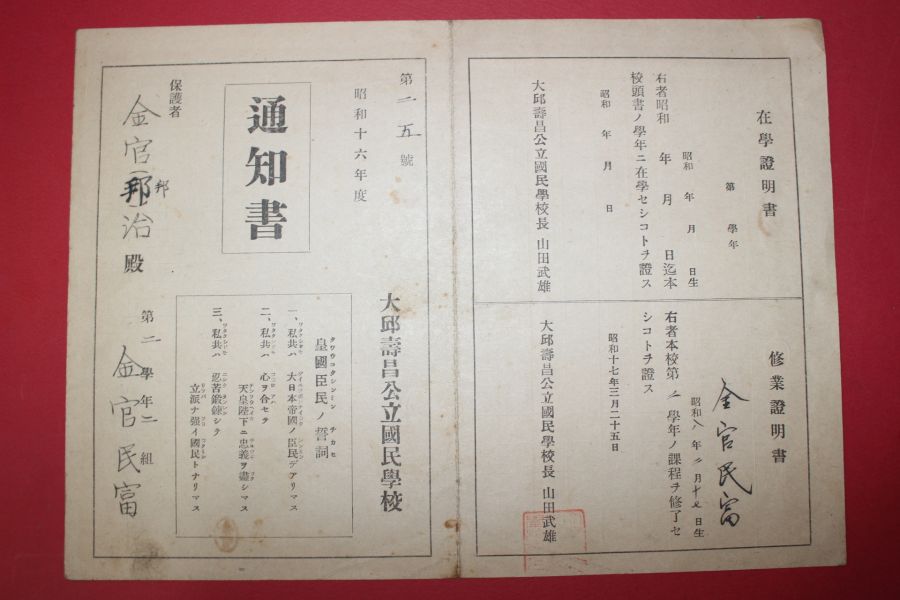 在學證明書
第　學年
昭和　年　月　日生
右者昭和　年　月　日迄本
校頭書ノ學年ニ在學セシコトヲ證ス
昭和　年　月　日
大邱壽昌公立國民學校長　山田武雄
修業證明書
金官民富
昭和八年二月十七日生
右者本校第二學年ノ課程ヲ修了セ
シコトヲ證ス
昭和十七年三月二十五日
大邱壽昌公立國民學校長　山田武雄
第二五號
昭和十六年度
通知書
保護者
金官邦治殿
邦
第二學年二組
金官民富
大邱壽昌公立國民學校
皇國臣民ノ誓詞
一、私共ハ　大日本帝國ノ臣民デアリマス
二、私共ハ　心ヲ合セテ
天皇陛下ニ忠義ヲ盡シマス
三、私共ハ　忍苦鍛鍊シテ
立派ナ强イ國民トナリマス